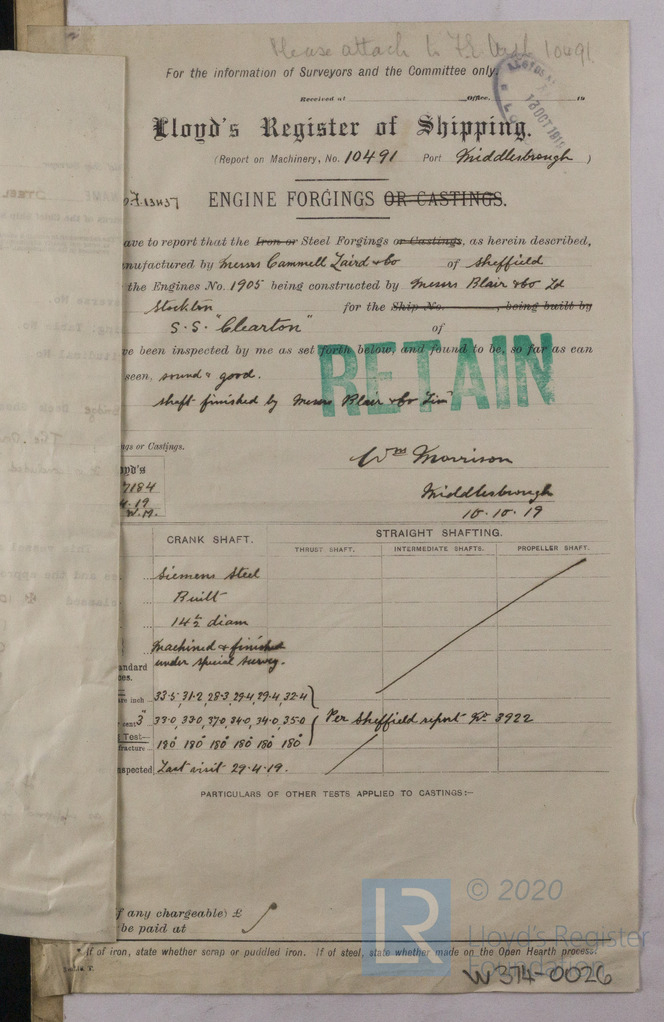 Please attach to F.E. Rept 10491
For the information of Surveyors and the Committee only.
Received at Office. 19
13 OCT 1919
Lloyd's Register of Shipping.
(Report on Machinery, No. 10491 Port Middlesbrough )
ENGINE FORGINGS OR CASTINGS.
ave to report that the Iron or Steel Forgings or Castings, as herein described,
nufactured by Messrs Cammell Laird & Co of Sheffield
the Engines No. 1905 being constructed by Messrs Blair & Co Ld
Stockton for the Ship No. , being built by
S.S. "Clearton" of
ve been inspected by me as set forth below, and found to be, so far as can
seen, sound & good.
shaft finished by Messrs Blair & Co Lim
RETAIN
ngs or Castings.
oyd's
7184
4.19
W.M.
Wm Morrison
Middlesbrough
10.10.19
CRANK SHAFT. STRAIGHT SHAFTING.
THRUST SHAFT. INTERMEDIATE SHAFTS. PROPELLER SHAFT.
Siemens Steel
Built
14½ diam
Machined & finished
under special survey.
andard
ces.
are inch 33.5, 31.2, 28.3, 29.4, 29.4, 32.4
cent 3" 33.0, 33.0, 37.0, 34.0, 34.0, 35.0 Per Sheffield report No. 3922
Test—
fracture 180° 180° 180° 180° 180° 180°
spected Last visit 29.4.19.
PARTICULARS OF OTHER TESTS APPLIED TO CASTINGS:—
f any chargeable) £
be paid at
* If of iron, state whether scrap or puddled iron. If of steel, state whether made on the Open Hearth process.
LR
© 2020
Lloyd's Register
Foundation
W374-0026